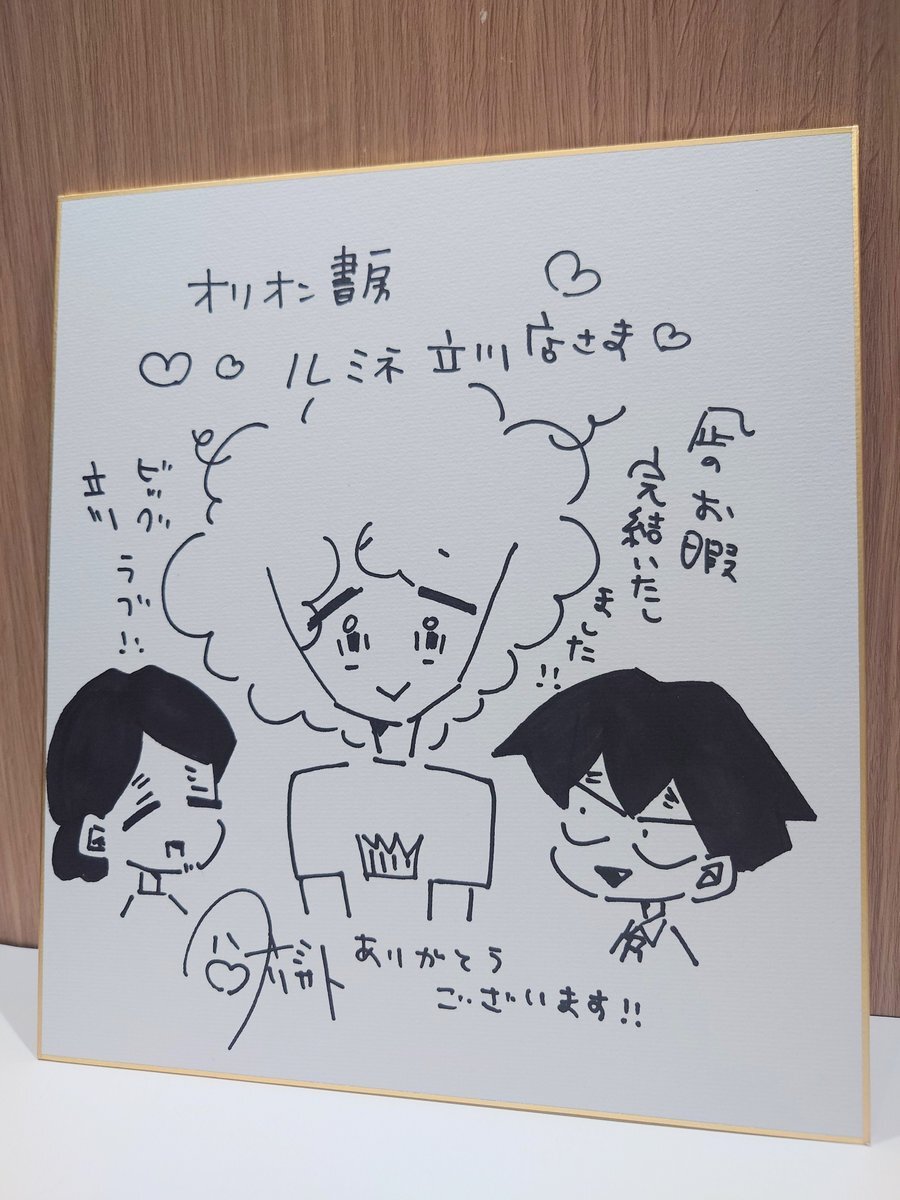 オリオン書房
ルミネ立川店さま
凪のお暇
完結いたし
ました!!
ビッグ
ラブ!!
立川
ありがとう
ございます!!